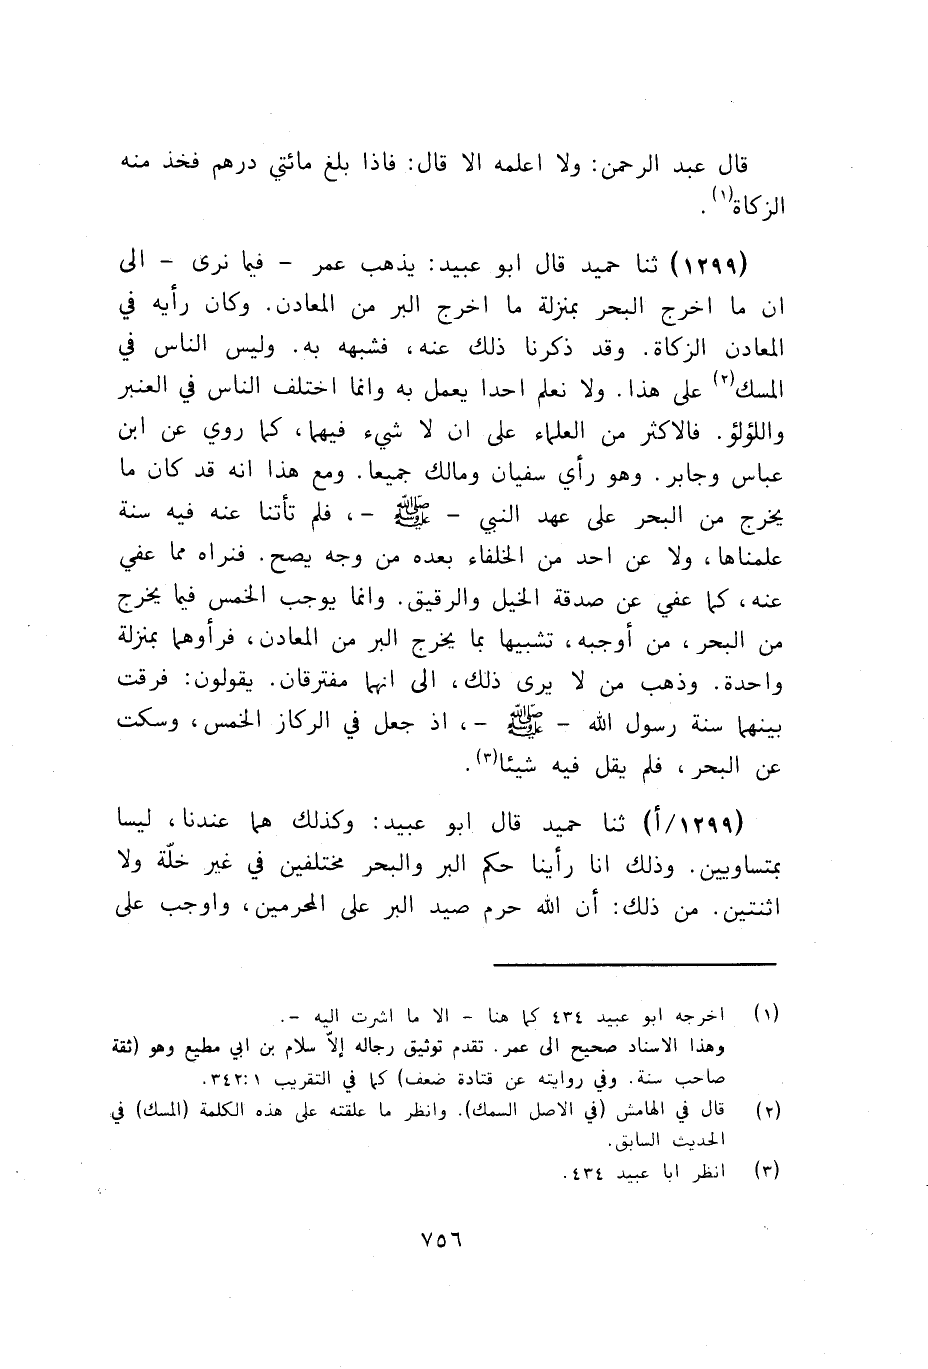 قال عبد الرحمن: ولا اعلمه الا قال: فاذا بلغ مائتي درهم فخذ منه
الزكاة(١).
(١٢٩٩) ثنا حميد قال ابو عبيد: يذهب عمر - فيما نرى - الى
ان ما اخرج البحر بمنزلة ما اخرج البر من المعادن. وكان رأيه في
المعادن الزكاة. وقد ذكرنا ذلك عنه، فشبهه به. وليس الناس في
المسك(٢) على هذا. ولا نعلم احدا يعمل به وانما اختلف الناس في العنبر
واللؤلؤ. فالاكثر من العلماء على ان لا شيء فيهما، كما روي عن ابن
عباس وجابر. وهو رأي سفيان ومالك جميعا. ومع هذا انه قد كان ما
يخرج من البحر على عهد النبي - ﷺ -، فلم تأتنا عنه فيه سنة
علمناها، ولا عن احد من الخلفاء بعده من وجه يصح. فنراه مما عفي
عنه، كما عفي عن صدقة الخيل والرقيق. وانما يوجب الخمس فيما يخرج
من البحر، من أوجبه، تشبيها بما يخرج البر من المعادن، فرأوهما بمنزلة
واحدة. وذهب من لا يرى ذلك، الى انهما مفترقان. يقولون: فرقت
بينهما سنة رسول الله - ﷺ -، اذ جعل في الركاز الخمس، وسكت
عن البحر، فلم يقل فيه شيئا(٣).
(١٢٩٩/أ) ثنا حميد قال ابو عبيد: وكذلك هما عندنا، ليسا
بمتساويين. وذلك انا رأينا حكم البر والبحر مختلفين في غير خلّة ولا
اثنتين. من ذلك: أن الله حرم صيد البر على المحرمين، واوجب على
(١) اخرجه ابو عبيد ٤٣٤ كما هنا - الا ما اشرت اليه -.
وهذا الاسناد صحيح الى عمر. تقدم توثيق رجاله إلاّ سلام بن ابي مطيع وهو (ثقة
صاحب سنة. وفي روايته عن قتادة ضعف) كما في التقريب ١:٣٤٢.
(٢) قال في الهامش (في الاصل السمك). وانظر ما علقته على هذه الكلمة (المسك) في
الحديث السابق.
(٣) انظر ابا عبيد ٤٣٤.
٧٥٦